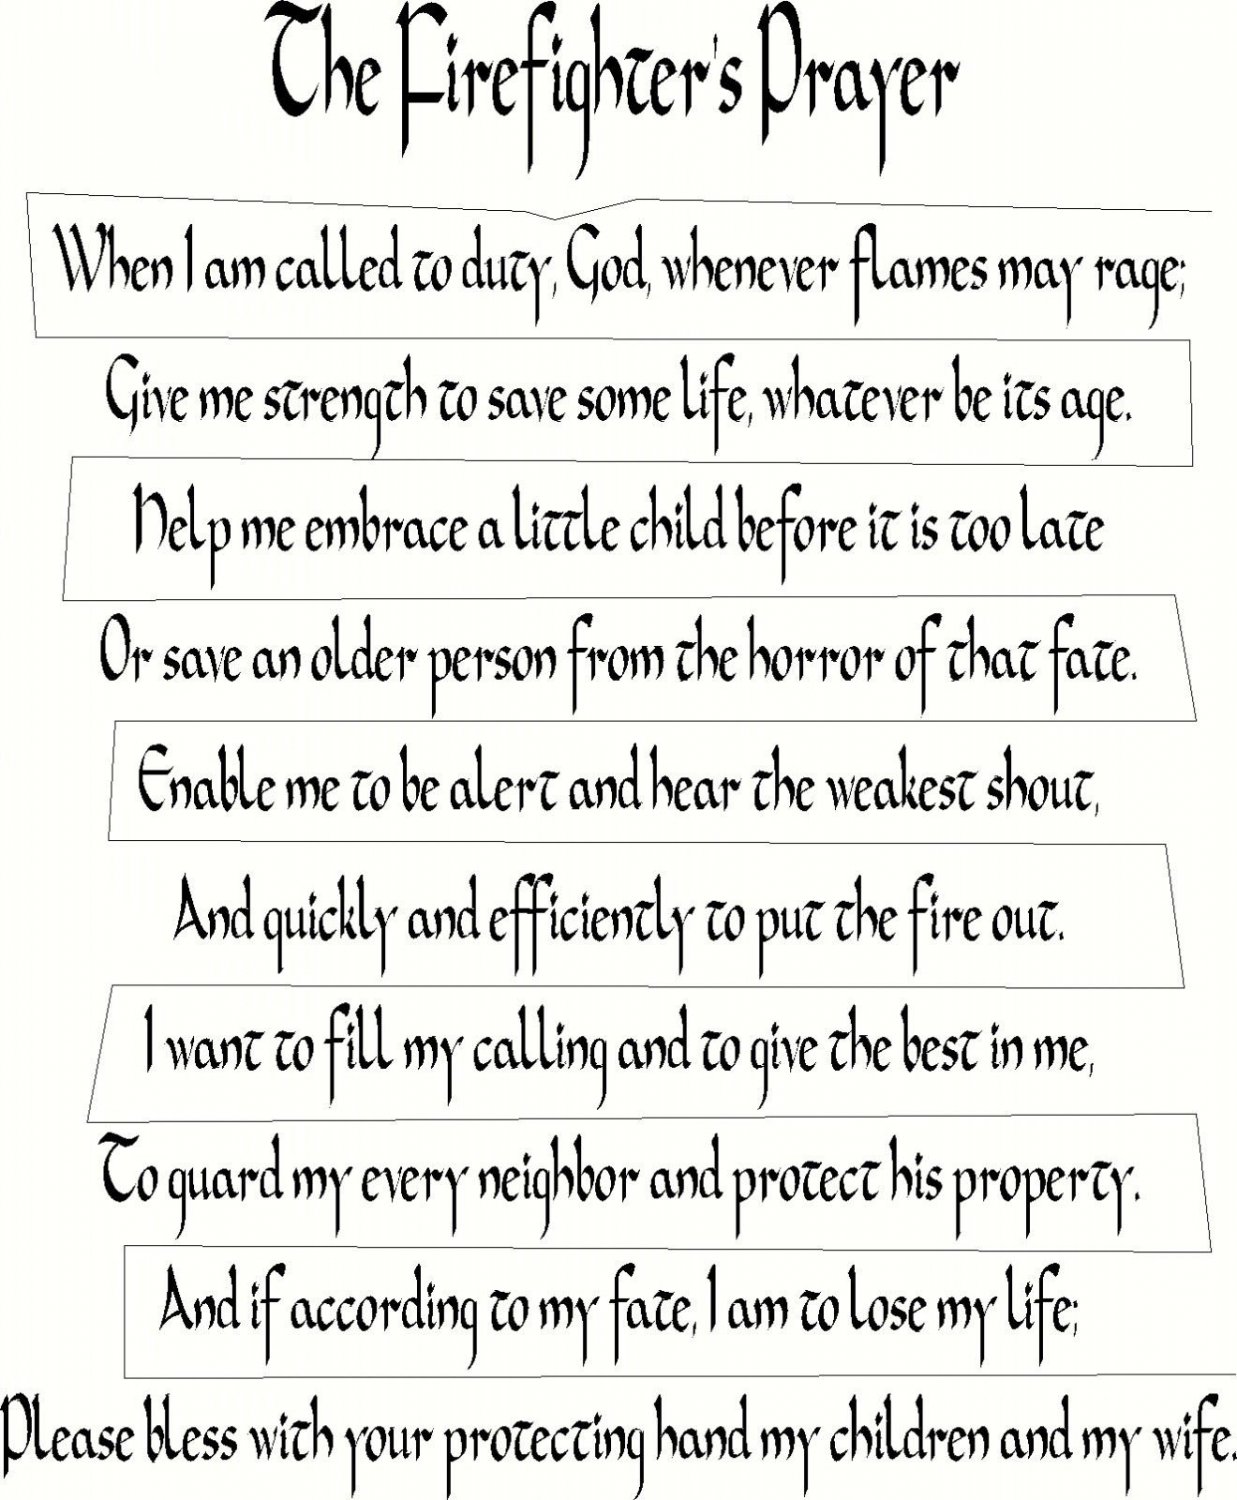 The Firefighter's Prayer
When I am called to duty, God, whenever flames may rage;
Give me strength to save some life, whatever be its age.
Help me embrace a little child before it is too late
Or save an older person from the horror of that fate.
Enable me to be alert and hear the weakest shout,
And quickly and efficiently to put the fire out.
I want to fill my calling and to give the best in me,
To guard my every neighbor and protect his property.
And if according to my fate, I am to lose my life;
Please bless with your protecting hand my children and my wife.